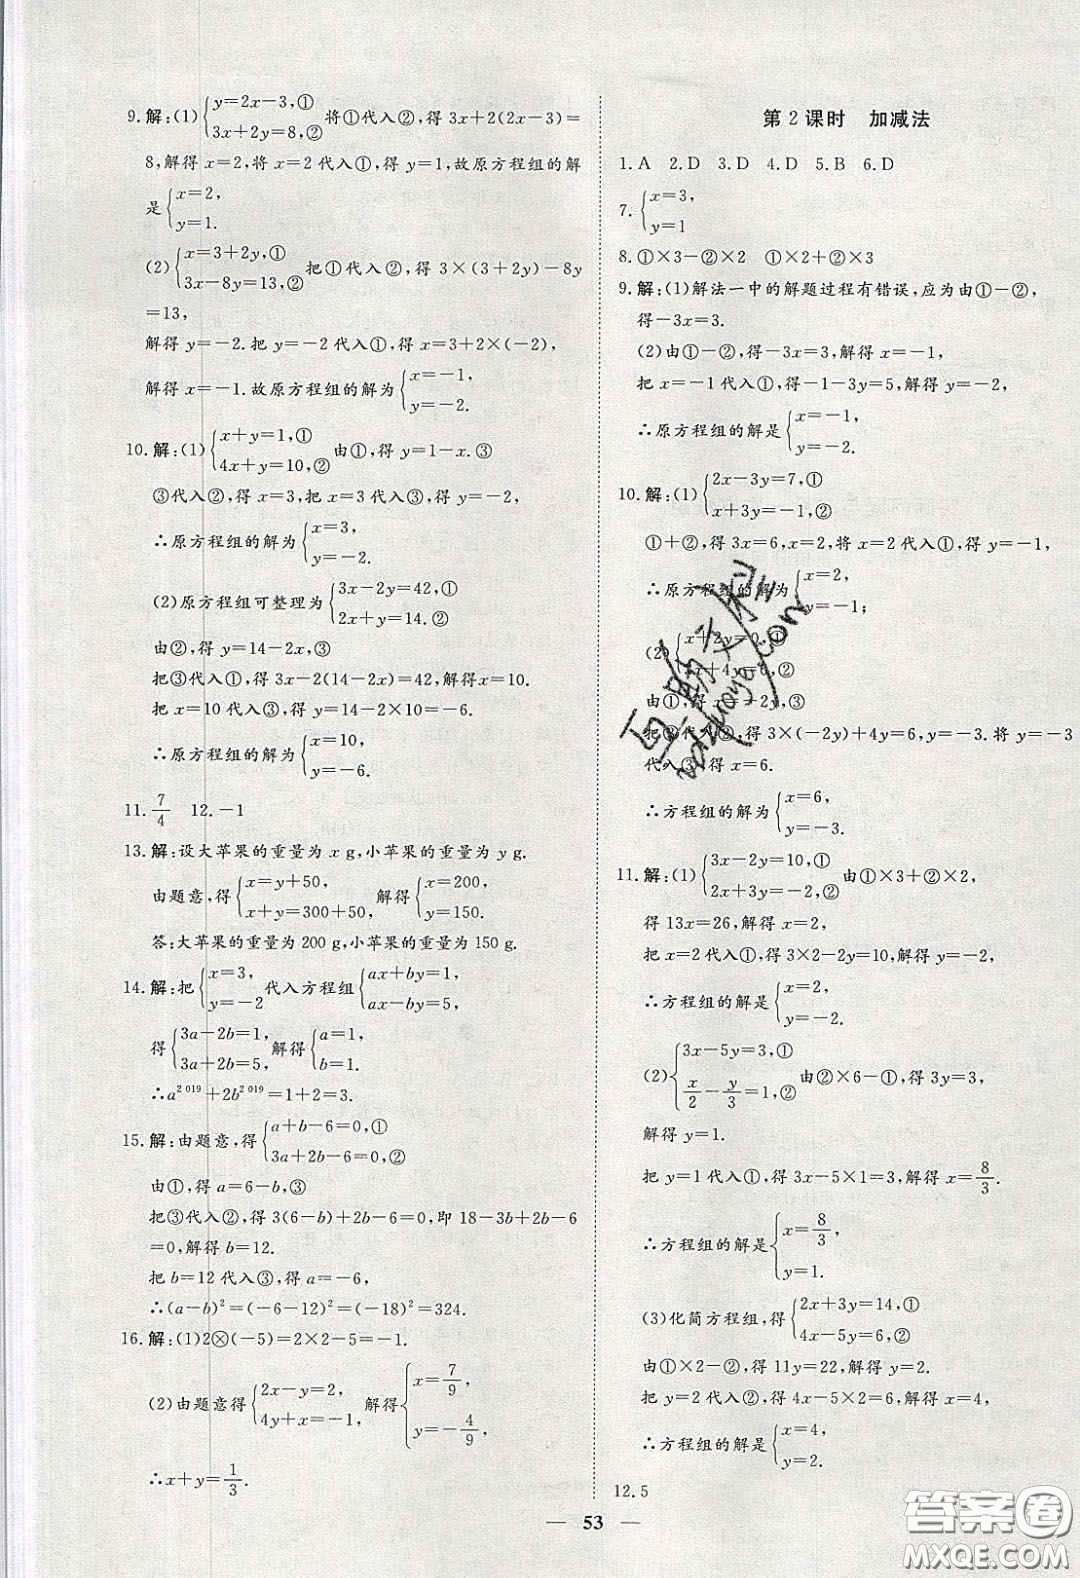 9.解:(1){y=2x-3,① 3x+2y=8,② 将①代入②,得 3x+2(2x-3)=
8,解得 x=2,将 x=2代入①,得 y=1,故原方程组的解
是{x=2, y=1.
(2){x=3+2y,① 3x-8y=13,② 把①代入②,得 3×(3+2y)-8y
=13,
解得 y=-2.把 y=-2代入①,得 x=3+2×(-2),
解得 x=-1.故原方程组的解为{x=-1, y=-2.
10.解:(1){x+y=1,① 4x+y=10,② 由①,得 y=1-x.③
③代入②,得 x=3,把 x=3代入③,得 y=-2,
∴原方程组的解为{x=3, y=-2.
(2)原方程组可整理为{3x-2y=42,① 2x+y=14.②
由②,得 y=14-2x,③
把③代入①,得 3x-2(14-2x)=42,解得 x=10.
把 x=10代入③,得 y=14-2×10=-6.
∴原方程组的解为{x=10, y=-6.
11.7/4 12.-1
13.解:设大苹果的重量为 x g,小苹果的重量为 y g.
由题意,得{x=y+50, x+y=300+50, 解得{x=200, y=150.
答:大苹果的重量为 200 g,小苹果的重量为 150 g.
14.解:把{x=3, y=-2 代入方程组{ax+by=1, ax-by=5,
得{3a-2b=1, 3a+2b=5, 解得{a=1, b=1.
∴a^2 019+2b^2 019=1+2=3.
15.解:由题意,得{a+b-6=0,① 3a+2b-6=0,②
由①,得 a=6-b,③
把③代入②,得 3(6-b)+2b-6=0,即 18-3b+2b-6
=0,解得 b=12.
把 b=12代入③,得 a=-6,
∴(a-b)²=(-6-12)²=(-18)²=324.
16.解:(1)2⊗(-5)=2×2-5=-1.
(2)由题意得{2x-y=2, 4y+x=-1, 解得{x=7/9, y=-4/9.
∴x+y=1/3.
第2课时 加减法
1.A 2.D 3.D 4.D 5.B 6.D
7.{x=3, y=1
8.①×3-②×2 ①×2+②×3
9.解:(1)解法一中的解题过程有错误,应为由①-②,
得-3x=3.
(2)由①-②,得-3x=3,解得 x=-1,
把 x=-1代入①,得-1-3y=5,解得 y=-2,
∴原方程组的解是{x=-1, y=-2.
10.解:(1){2x-3y=7,① x+3y=-1,②
①+②,得 3x=6,x=2,将 x=2代入①,得 y=-1,
∴原方程组的解为{x=2, y=-1;
(2){x+2y=0,① 3x+4y=6,②
由①,得 x=-2y,③
把③代入②,得 3×(-2y)+4y=6,y=-3.将 y=-3
代入③,得 x=6.
∴方程组的解为{x=6, y=-3.
11.解:(1){3x-2y=10,① 2x+3y=-2,② 由①×3+②×2,
得 13x=26,解得 x=2,
把 x=2代入①,得 3×2-2y=10,解得 y=-2,
∴方程组的解是{x=2, y=-2.
(2){3x-5y=3,① x/2-y/3=1,② 由②×6-①,得 3y=3,
解得 y=1.
把 y=1代入①,得 3x-5×1=3,解得 x=8/3.
∴方程组的解是{x=8/3, y=1.
(3)化简方程组,得{2x+3y=14,① 4x-5y=6.②
由①×2-②,得 11y=22,解得 y=2.
把 y=2代入②,得 4x-5×2=6,解得 x=4,
∴方程组的解是{x=4, y=2.
12.5
53
答案圈
MXQE.COM